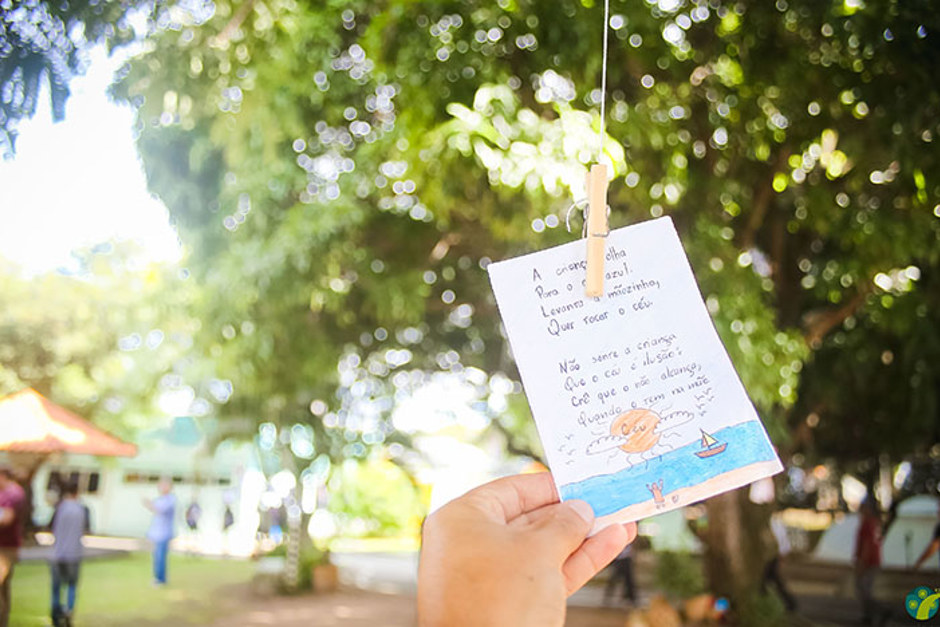 A criança olha
Para o céu azul.
Levanta a mãozinha,
Quer tocar o céu.
Não sente a criança
Que o céu é ilusão:
Crê que o não alcança,
Quando o tem na mão.
Céu